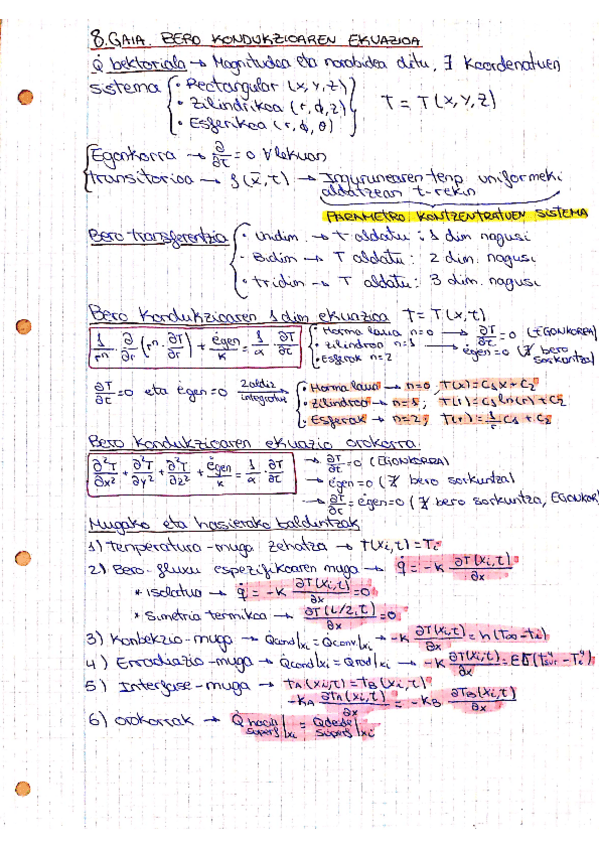 8.GAIA. BERO KONDUKZIOAREN EKUAZIOA
Q̇ bektoriala → Magnitudea eta norabidea ditu, ∃ koordenatuen
sistema { · Rectangular (x,y,z)
· Zilindrikoa (r,ϕ,z)
· Esferikoa (r,ϕ,θ) } T = T(x,y,z)
{ Egonkorra → ∂/∂τ = 0 ∀lekuan
transitorioa → f(x̄,τ) → Ingurunearen tenp. uniformeki
aldatzean t-rekin
PARAMETRO KONTZENTRATUEN SISTEMA
Bero transferentzia { · unidim. → T aldatu : 1 dim nagusi
· Bidim → T aldatu : 2 dim. nagusi
· tridim → T aldatu : 3 dim. nagusi
Bero kondukzioaren 1 dim ekuazioa T = T(x,t)
1/rⁿ · ∂/∂r (rⁿ · ∂T/∂r) + ėgen/k = 1/α · ∂T/∂τ { · Horma laua n=0 → ∂T/∂τ = 0 (EGONKORRA)
· Zilindroa n=1 → ėgen=0 (∄ bero sorkuntza)
· Esferak n=2
∂T/∂τ = 0 eta ėgen=0 2 aldiz integratu → { · Horma laua → n=0, T(x)= C₁x + C₂
· Zilindroa → n=1, T(r)= C₁ ln(r) + C₂
· Esferak → n=2, T(r)= 1/r C₁ + C₂
Bero kondukzioaren ekuazio orokorra
∂²T/∂x² + ∂²T/∂y² + ∂²T/∂z² + ėgen/k = 1/α · ∂T/∂τ → ∂T/∂τ = 0 (EGONKORRA)
→ ėgen=0 (∄ bero sorkuntza)
→ ∂T/∂τ = ėgen=0 (∄ bero sorkuntza, EGONKOR)
Mugako eta hasierako baldintzak
1) Tenperatura-muga zehatza → T(xi,τ)=Ti
2) Bero-fluxu espezifikoaren muga → q̇ = -k ∂T(xi,τ)/∂x
* isolatua → q̇ = -k ∂T(xi,τ)/∂x = 0
* Simetria termikoa → ∂T(L/2,τ)/∂x = 0
3) Konbekzio-muga → Q̇cond|xi = Q̇conv|xi → -k ∂T(xi,τ)/∂x = h(T∞-Ti)
4) Erradiazio-muga → Q̇cond|xi = Q̇rad|xi → -k ∂T(xi,τ)/∂x = εσ(T⁴sur - Ti⁴)
5) Interfase-muga → TA(xi,τ)=TB(xi,τ)
-kA ∂TA(xi,τ)/∂x = -kB · ∂TB(xi,τ)/∂x
6) Orokorrak → Q̇ hacia superf|xi = Q̇ desde superf|xi